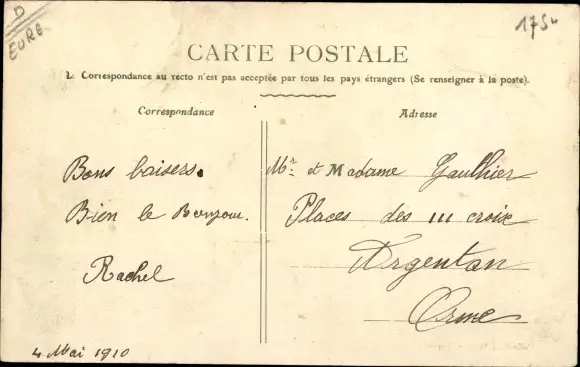 D
EURE
175-
CARTE POSTALE
La Correspondance au recto n'est pas acceptée par tous les pays étrangers (Se renseigner à la poste).
Correspondance
Adresse
Bons baisers.
Bien le Bonjour.
Rachel
4 Mai 1910
Mr et Madame Gaulhier
Places des III croix
Argentan
Orne